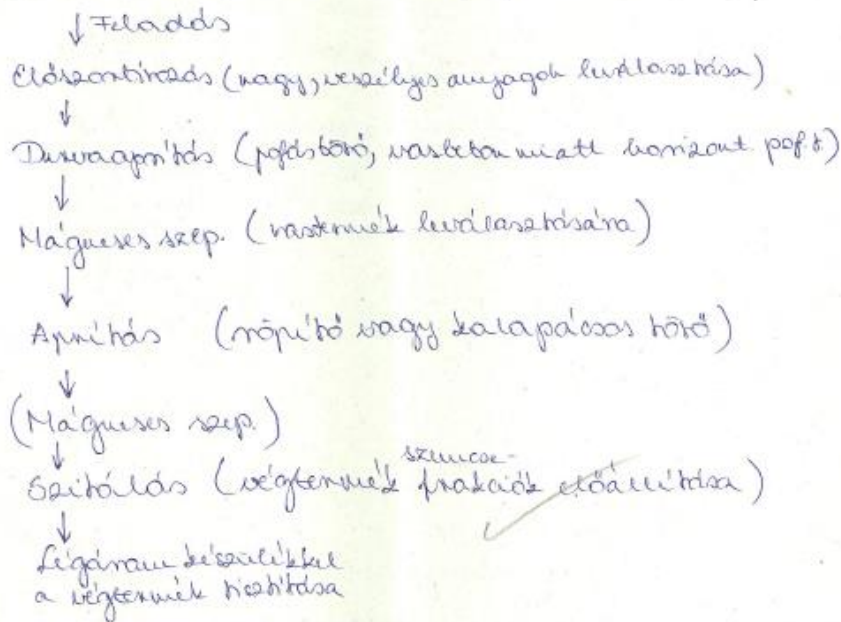 ↓ Feladás
Előszortírozás (nagy, veszélyes anyagok leválasztása)
↓
Durvaaprítás (pofástörő, vasbeton miatt horizont. pof. t)
↓
Mágneses szep. (vastermék leválasztására)
↓
Aprítás (röpítő vagy kalapácsos törő)
↓
(Mágneses szep.)
↓
Szitálás (végtermék szemcse-frakciók előállítása)
↓
Légáram készülékkel
a végtermék tisztítása